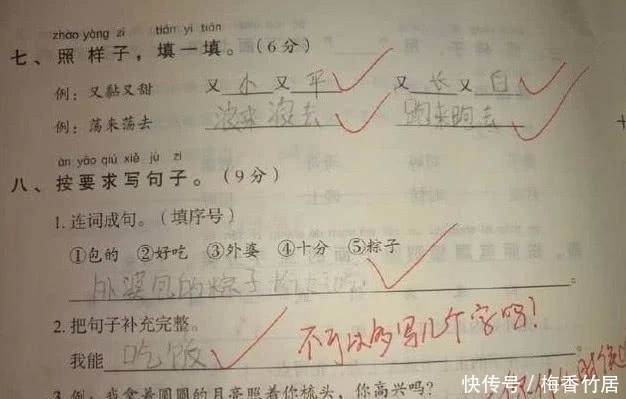 zhào yàng zi tián yi tián
七、照样子，填一填。（6分）
例：又黏又甜 又小又平 又长又白
例：荡来荡去 滚来滚去 跑来跑去
àn yāo qiú xiě jù zi
八、按要求写句子。（9分）
1.连词成句。（填序号）
①包的 ②好吃 ③外婆 ④十分 ⑤粽子
外婆包的粽子十分好吃。
2.把句子补充完整。
我能吃饭。 不可以多写几个字吗！
3.例：我拿着圆圆的月亮照着你梳头，你高兴吗？
快传号／梅香竹居